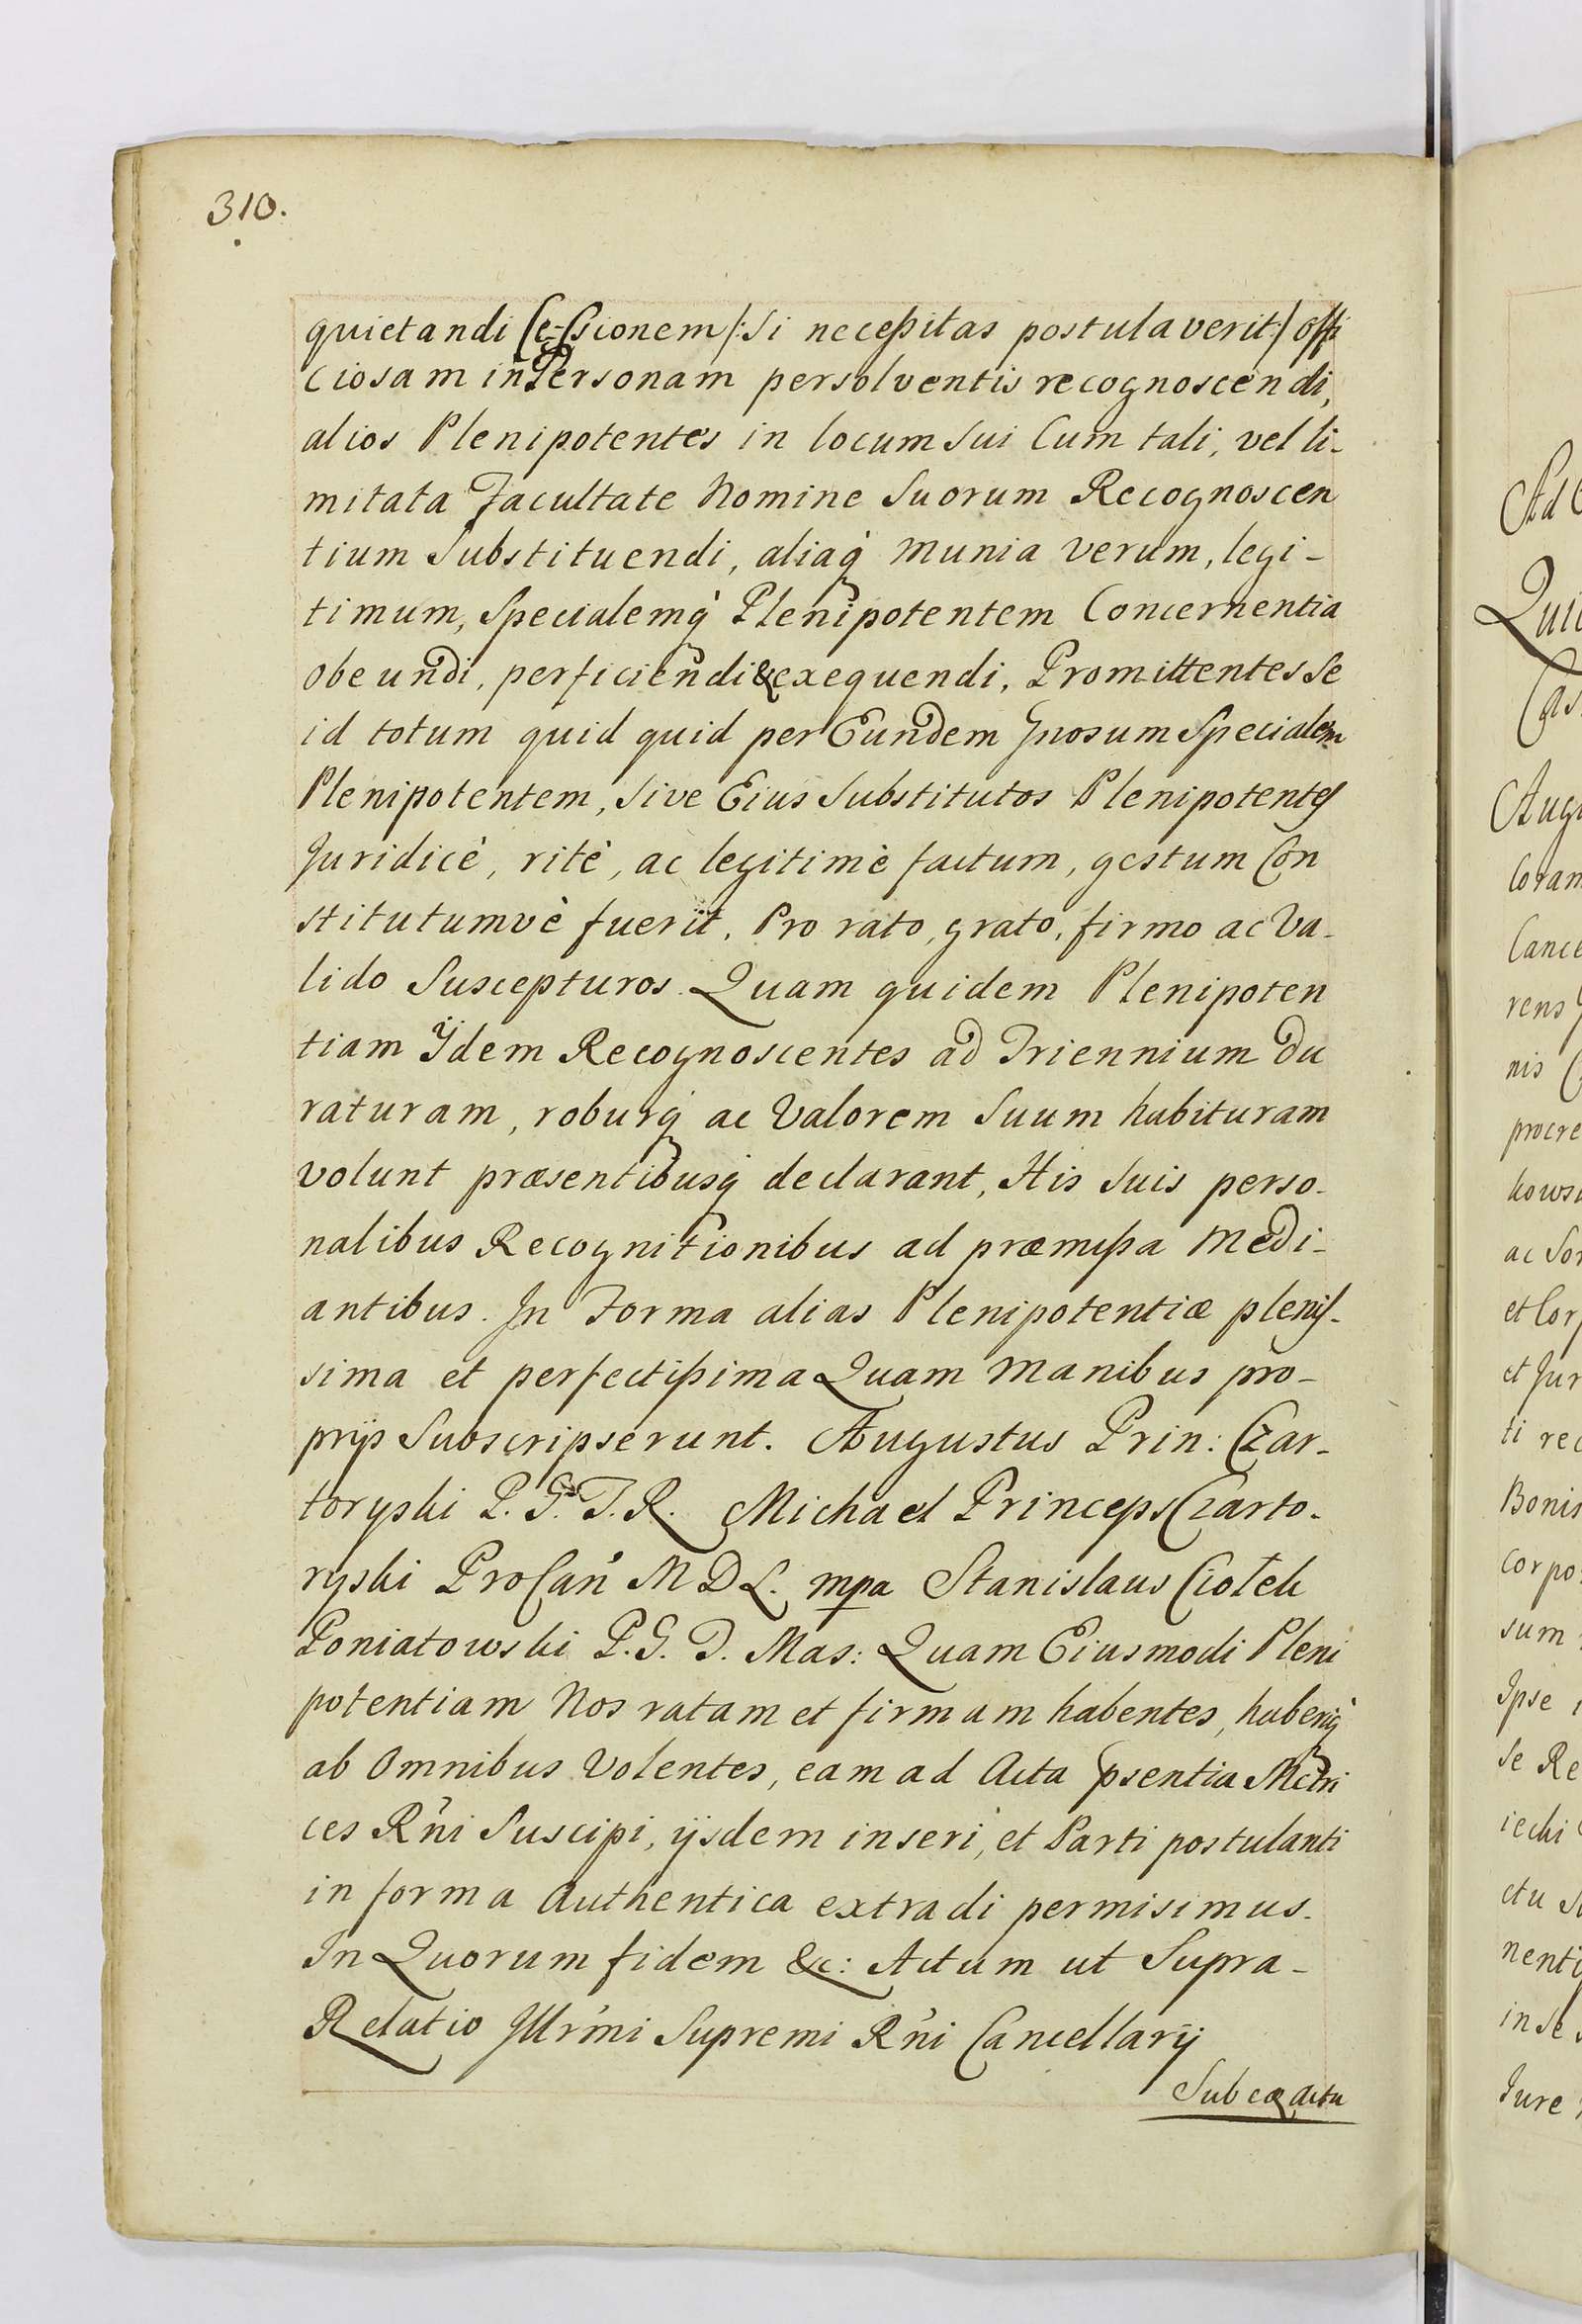 310.
quietandi Cessionem /:si necessitas postulaverit:/ offi
ciosam in Personam persolventis recognoscendi,
alios Plenipotentes in locum sui Cum tali, vel li-
mitata Facultate Nomine Suorum Recognoscen
tium Substituendi, aliaq̀ munia verum, legi-
timum, Specialemq̀ Plenipotentem Concernentia
obeundi, perficiendi & exequendi, Promittentes Se
id totum quid quid per Eundem Gnosum Specialem
Plenipotentem, sive Eius Substitutos Plenipotentes
Juridicè, ritè, ac legitimè factum, gestum Con
stitutumvè fuerit, Pro rato, grato, firmo ac Va-
lido Suscepturos. Quam quidem Plenipoten
tiam Ijdem Recognoscentes ad Triennium Du
raturam, roburq̀ ac Valorem Suum habituram
volunt præsentibusq̀ declarant, His Suis perso-
nalibus Recognitionibus ad præmissa Medi-
antibus. In Forma alias Plenipotentiæ plenis-
sima et perfectissima Quam Manibus pro-
prijs Subscripserunt. Augustus Prin: Czar-
toryski P. G. T. R. Michael Princeps Czarto-
ryski ProCan̄ M D L. mpa Stanislaus Ciołek
Poniatowski P. G. T. Mas: Quam Eiusmodi Pleni
potentiam Nos ratam et firmam habentes, haberiq̀
ab Omnibus Volentes, eam ad Acta psentia Metri
ces Rńi Suscipi, ijsdem inseri, et Parti postulanti
in forma Authentica extradi permisimus.
In Quorum fidem &c: Actum ut Supra-
Relatio Illrḿi Supremi Rńi Cancellarij
Sub eoq̀ actu